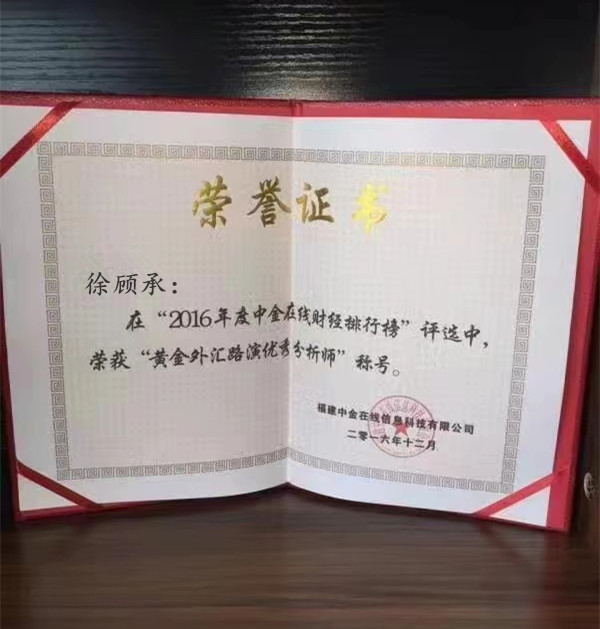 荣誉证书
徐顾承：
在“2016年度中金在线财经排行榜”评选中，
荣获“黄金外汇路演优秀分析师”称号。
福建中金在线信息科技有限公司
二零一六年十二月